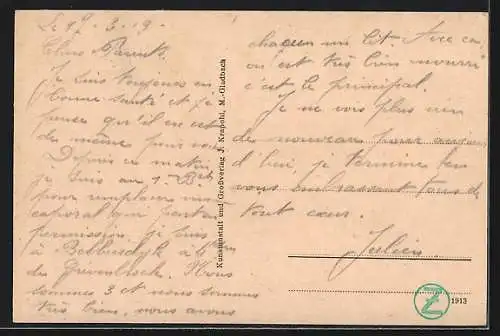 Le 27-3-19-
Chers Parents
Je suis toujours en
bonne santé et je
pense qu'il en est
de même pour vous
Depuis ce matin
je suis au 1. Bat
pour remplacer un
caporal qui part en
permission. je suis
à à 6 km
de Grevenbroch. Nous
sommes 3 et nous sommes
très bien, nous avons
chacun un lit. Avec ça
on est très bien nourri
c'est le principal.
Je ne vois plus rien
de nouveau pour
d'hui, je termine en
vous embrassant tous de
tout cœur.
Julien
Kunstanstalt und Großverlag J. Krapohl, M.-Gladbach
1913